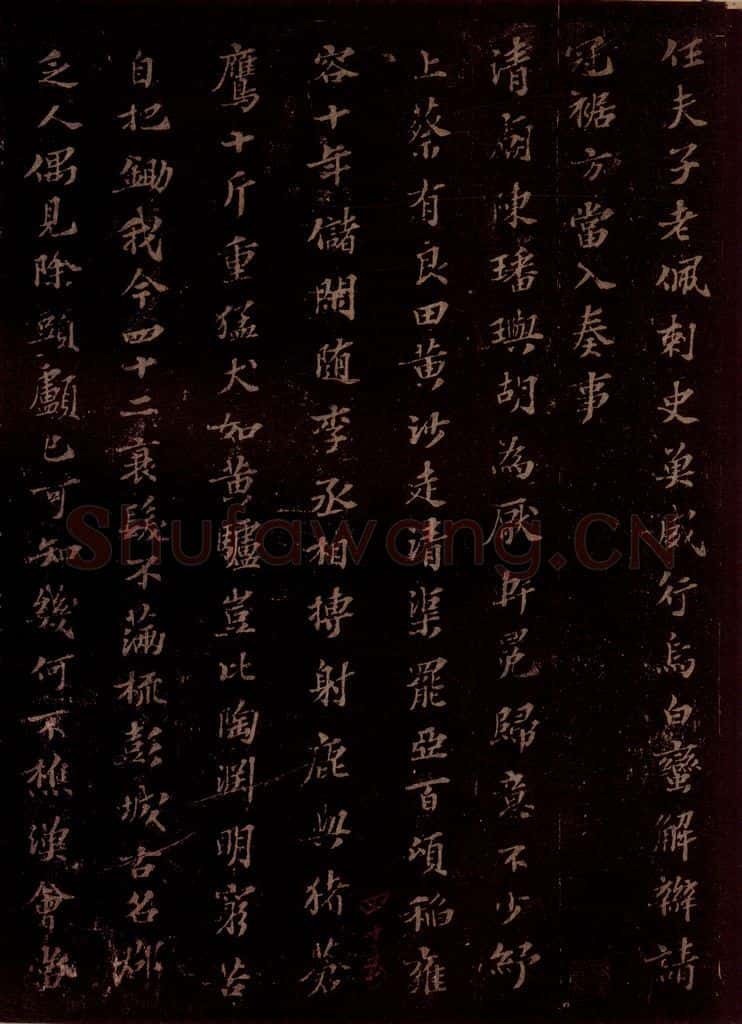 任夫子老佩刺史魚威行烏白蠻解辮請
冠裾方當入奏事
清廟陳璠璵胡為厭軒冕歸意不少紓
上蔡有良田黃沙走清渠罷亞百頃稻雍
容十年儲閑隨李丞相搏射鹿與猪蒼
鷹十斤重猛犬如黃驢豈比陶淵明窮苦
自把鋤我今四十二衰髮不滿梳彭城古名郡
乏人偶見除頭顱已可知幾何不樵漁會當
Shufawang.CN